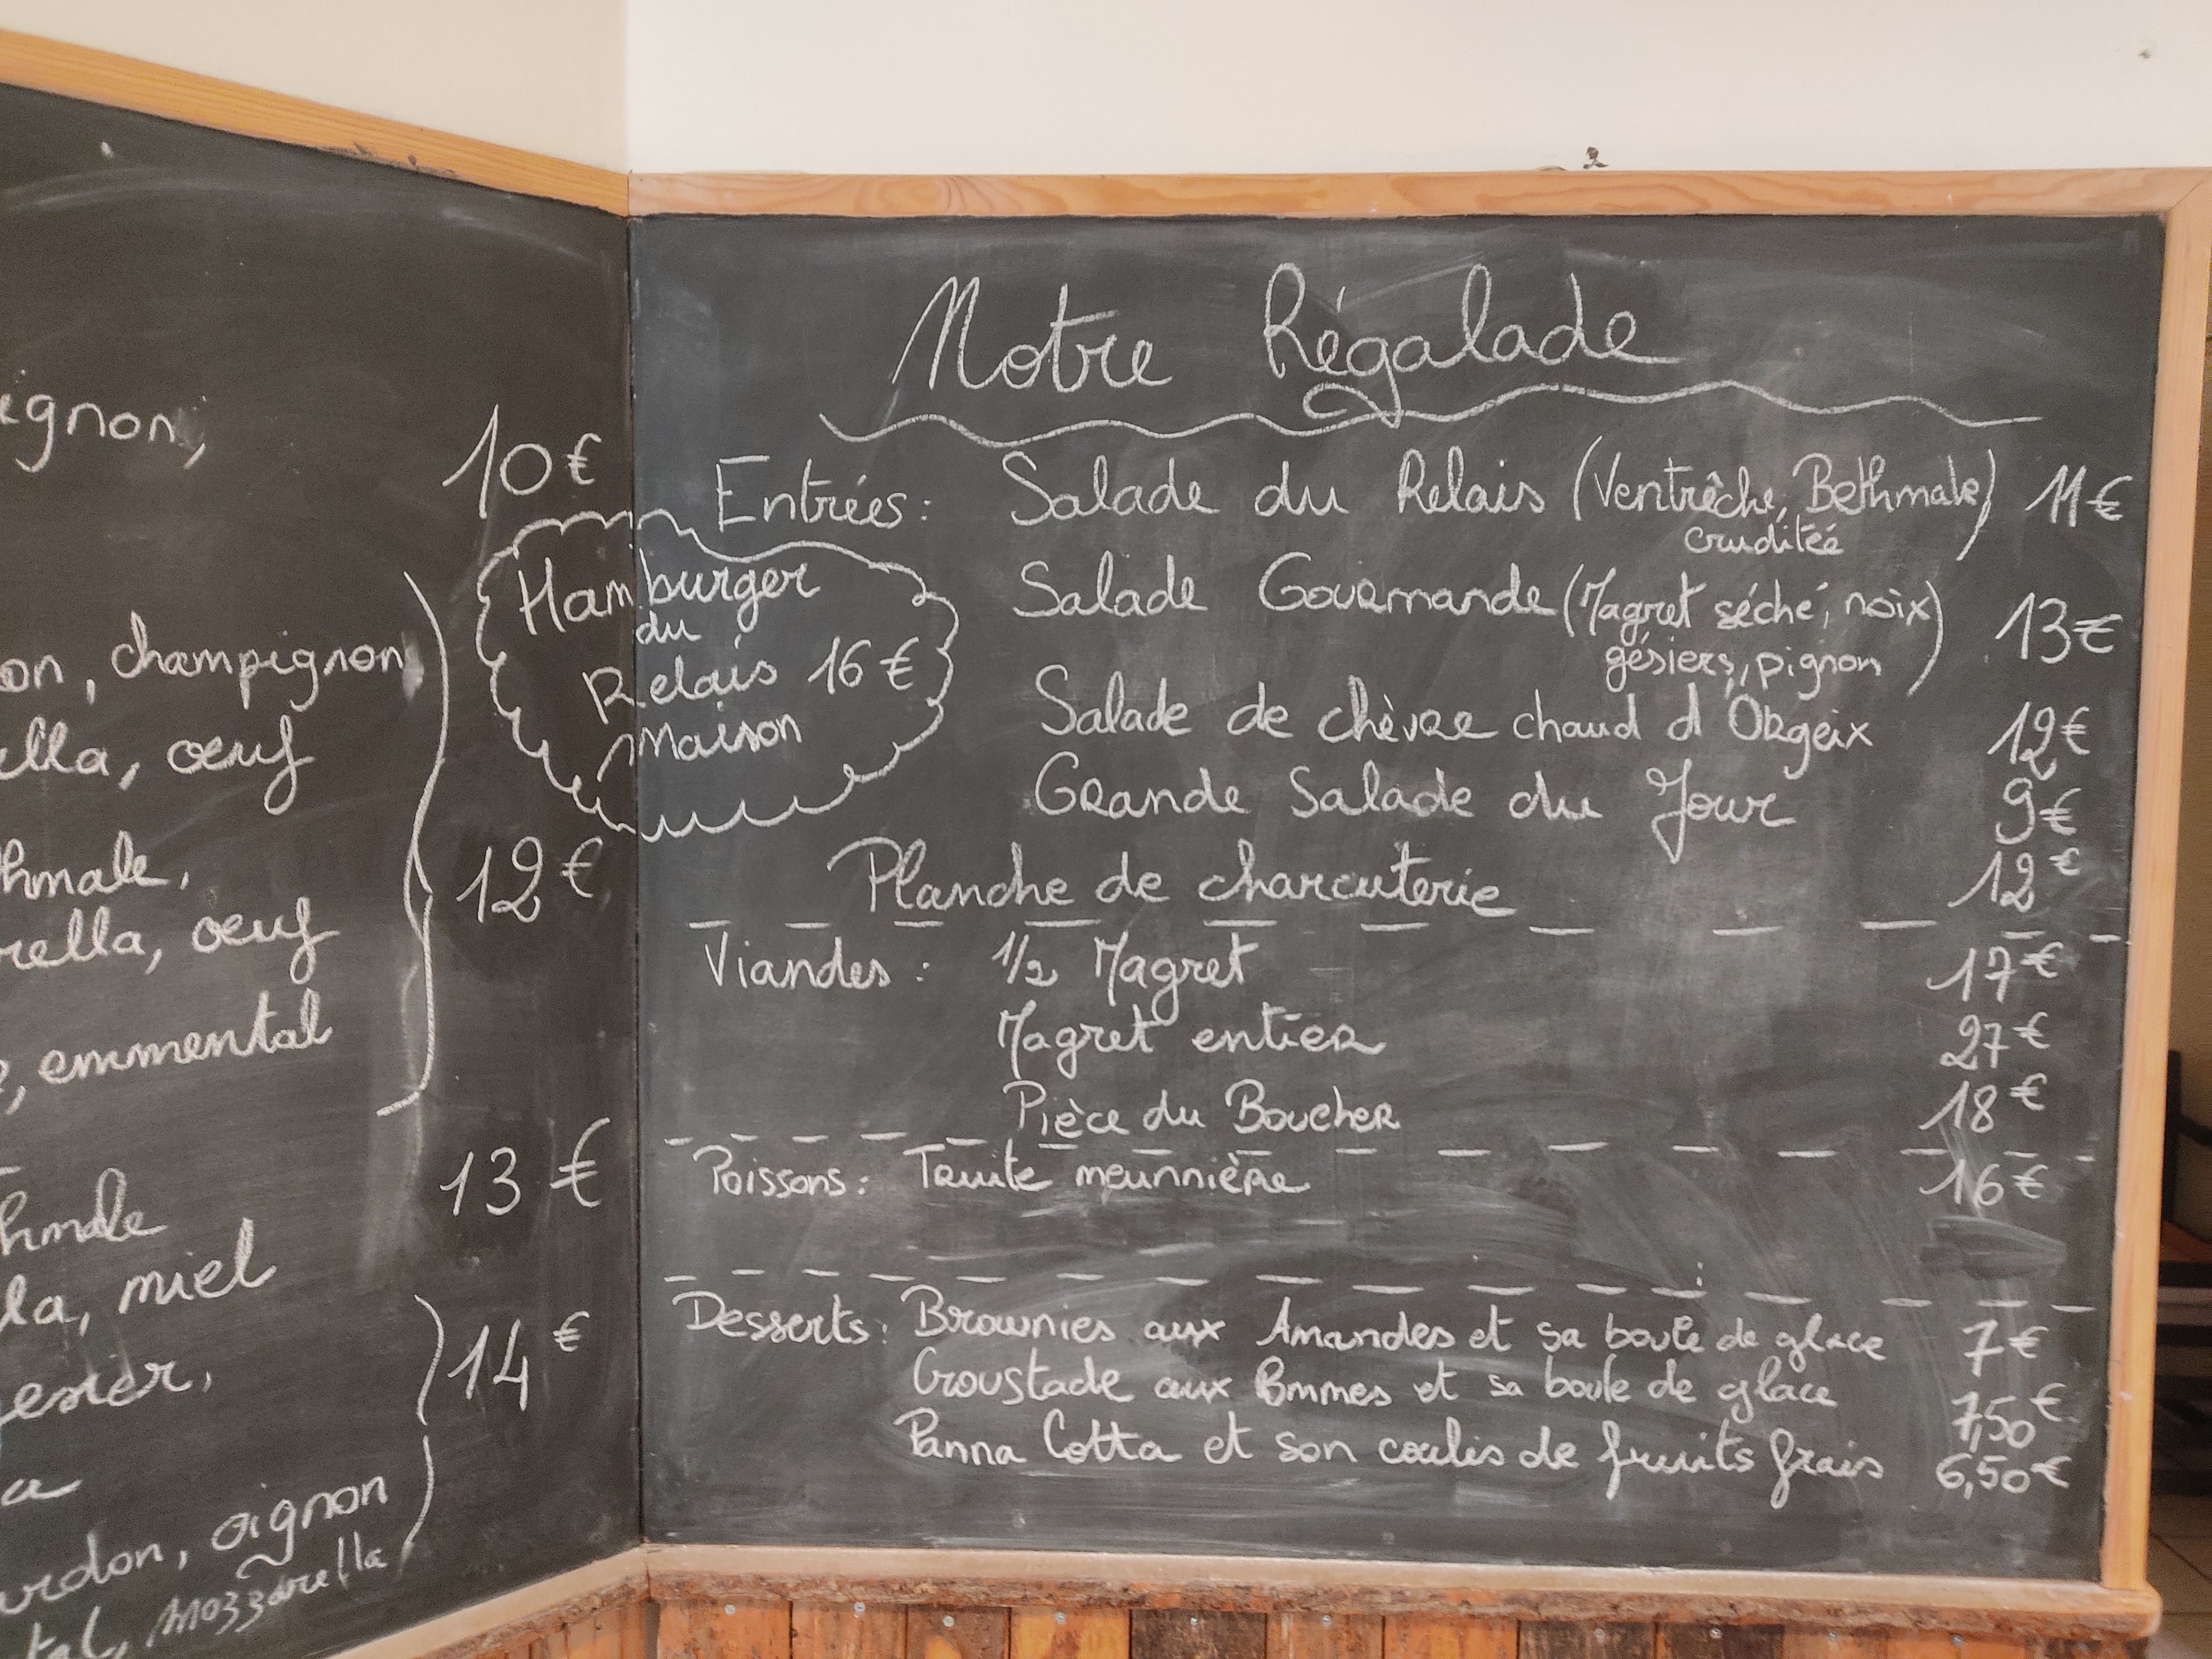 ignon,
10€
on, champignon,
ella, œuf
hmale,
rella, œuf
12€
, emmental
13€
hmale
la, miel
esier,
14€
a
urdon, oignon
tal, mozzarella
Hamburger
du
Relais 16€
Maison
Notre Régalade
Entrées: Salade du Relais (Ventrêche, Bethmale) 11€
cruditéé
Salade Gourmande (Magret séché, noix) 13€
gésiers, pignon
Salade de chèvre chaud d'Orgeix 12€
Grande Salade du Jour 9€
Planche de charcuterie 12€
Viandes: 1/2 Magret 17€
Magret entier 27€
Pièce du Boucher 18€
Poissons: Truite meunnière 16€
Desserts: Brownies aux Amandes et sa boule de glace 7€
Croustade aux Pommes et sa boule de glace 7,50€
Panna Cotta et son coulis de fruits frais 6,50€